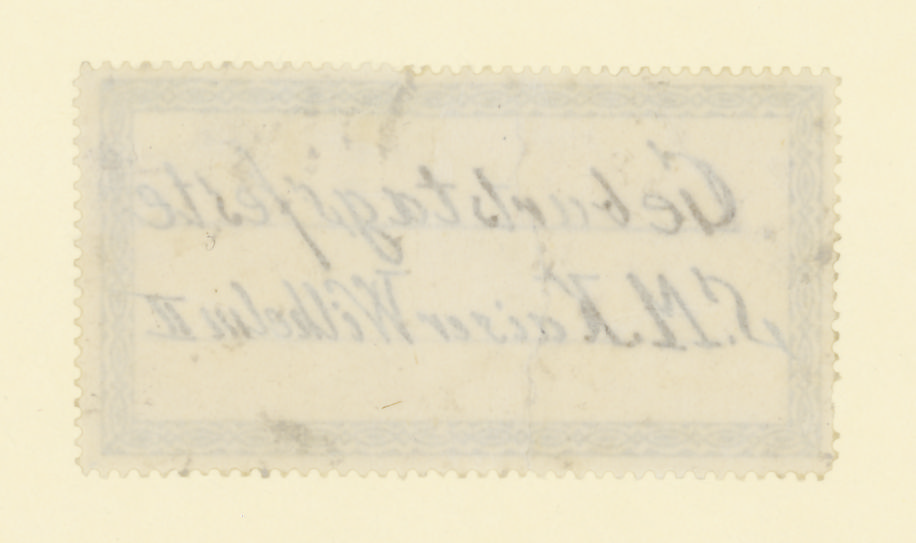 Geburtstagsfeste
S. M. Kaiser Wilhelm II